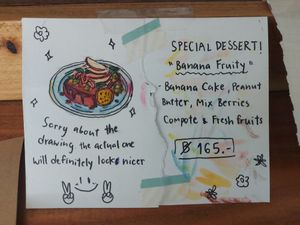 SPECIAL DESSERT!
"Banana Fruity"
- Banana Cake, Peanut
Butter, Mix Berries
Compote & Fresh Fruits
฿ 165.-
Sorry about the
drawing the actual one
will definitely looks nicer